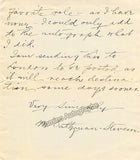 favorite role – as I have
many. I could only add
to the autograph what
I did.
I am sending this to
London to be posted as
it will reach destina-
tion some days sooner
Very Sincerely
Saltzmann-Stevens